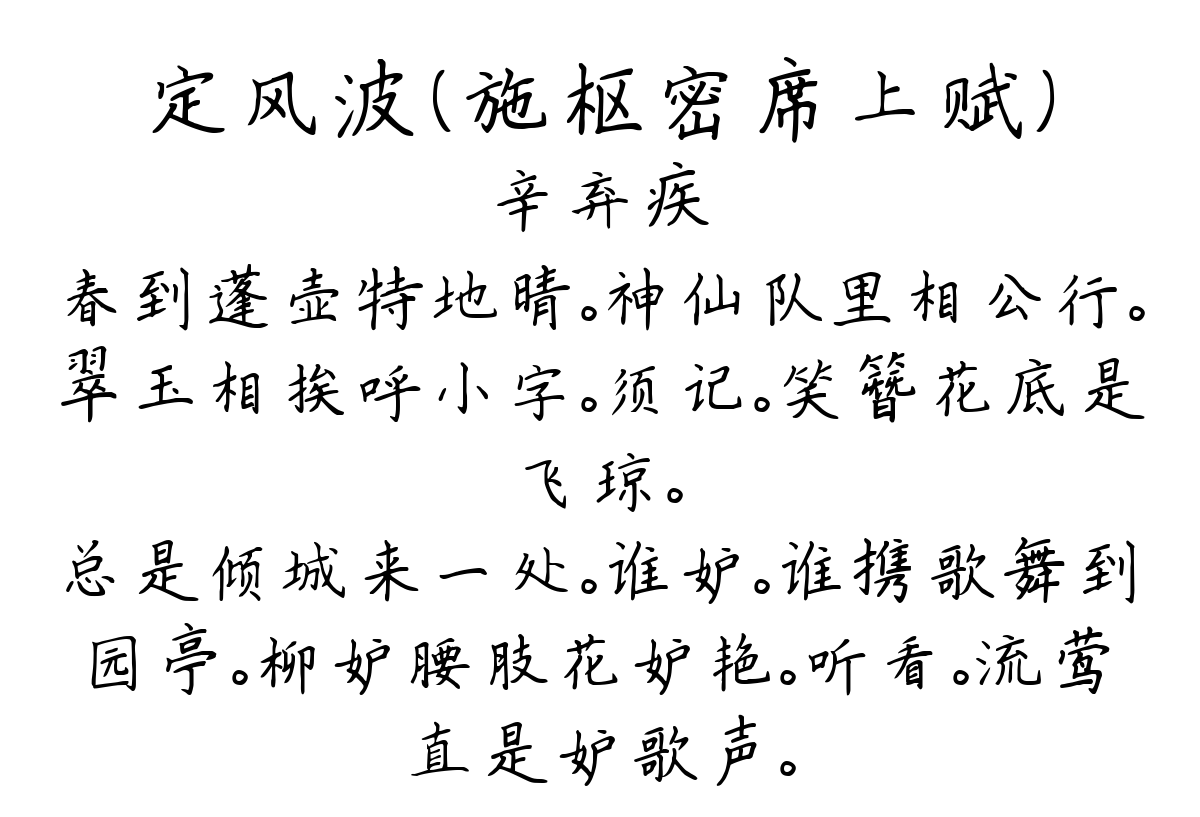 定风波(施枢密席上赋)
辛弃疾
春到蓬壶特地晴。神仙队里相公行。
翠玉相挨呼小字。须记。笑簪花底是
飞琼。
总是倾城来一处。谁妒。谁携歌舞到
园亭。柳妒腰肢花妒艳。听看。流莺
直是妒歌声。